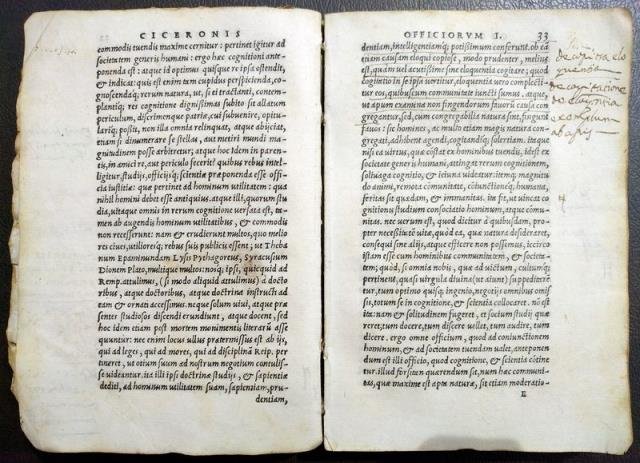 CICERONIS
commodis tuendis maxime cernitur: pertinet igitur ad
societatem generis humani: ergo hæc cognitioni ante-
ponenda est: atque id optimus quisque re ipsa ostendit,
& indicat: quis est enim tam cupidus perspicienda, co-
gnoscendaq; rerum natura, ut, si ei tractanti, contem-
plantiq; res cognitione dignissimas subito sit allatum
periculum, discrimenque patriæ, cui subuenire, opitu-
lariq; possit, non illa omnia relinquat, atque abijciat,
etiam si dinumerare se stellas, aut metiri mundi ma-
gnitudinem posse arbitretur; atque hoc idem in paren-
tis, in amici re, aut periculo fecerit? quibus rebus intel-
ligitur, studijs, officijsq; scientiæ præponenda esse offi-
cia iustitiæ: quæ pertinent ad hominum utilitatem: qua
nihil homini debet esse antiquius. atque illi, quorum stu-
dia, uitaque omnis in rerum cognitione uersata est, ta-
men ab augendis hominum utilitatibus, & commodis
non recesserunt: nam & erudierunt multos, quo melio
res ciues, utilioresq; rebus suis publicis essent; ut Theba
num Epaminundam Lysis Pythagoreus, Syracusium
Dionem Plato, multique multos: nosq; ipsi, quicquid ad
Remp. attulimus, (si modo aliquid attulimus) a docto
ribus, atque doctoribus, atque doctrina instructi ad
eam & ornati accessimus. neque solum uiui, atque præ-
sentes studiosos discendi erudiunt, atque docent, sed
hoc idem etiam post mortem monimentis literarū asse
quuntur: nec enim locus ullus prætermissus est ab ijs,
qui ad leges, qui ad mores, qui ad disciplinā Reip. per
tineret, ut otium suum ad nostrum negotium contulis-
se uideantur. ita illi ipsi doctrinæ studijs, & sapientiæ
dediti, ad hominum utilitatem suam, sapientiam, pru-
dentiam,
OFFICIORVM I. 33
dentiam, intelligentiamq; potissimum conferunt. ob eā
etiam causam eloqui copiose, modo prudenter, melius
est, quàm uel acutissime sine eloquentia cogitare; quod
cogitatio in se ipsa uertitur, eloquentia uero complecti-
tur eos, quibuscum communitate iuncti sumus. atque,
ut apum examina non fingendorum fauorū causa con
gregantur, sed, cum congregabilia natura sint, fingunt
fauos: sic homines, ac multo etiam magis natura con-
gregati, adhibent agendi, cogitandiq; solertiam. ita que
nisi ea uirtus, quæ cōstat ex hominibus tuendis, idest ex
societate generis humani, attingat rerum cognitionem,
soliuaga cognitio, & ieiuna uideatur: itemq; magnitu
do animi, remota cōmunitate, cōiunctioneq; humana,
feritas sit quædam, & immanitas. ita fit, ut uincat co-
gnitionis studium consociatio hominum, atque cōmu-
nitas. nec uerum est, quod dicitur à quibusdam, pro-
pter necessitatē uitæ, quod ea, quæ natura desideraret,
consequi sine alijs, atque efficere non possemus, iccirco
istam esse cum hominibus communitatem, & societa-
tem; quòd, si omnia nobis, quæ ad uictum, cultumq;
pertinent, quasi uirgula diuina (ut aiunt) suppeditarē-
tur, tum optimo quisq; ingenio, negotijs omnibus omis
sis, totum se in cognitione, & scientia collocaret. nō est
ita: nam & solitudinem fugeret, & socium studij quæ
reret; tum docere, tum discere uellet, tum audire, tum
dicere. ergo omne officium, quod ad coniunctionem
hominum, & ad societatem tuendam ualet, anteponen
dum est illi officio, quod cognitione, & scientia cōtine
tur. illud forsitan quærendum sit, num hæc communi-
tas, quæ maxime est apta naturæ, sit etiam moderatio-
E